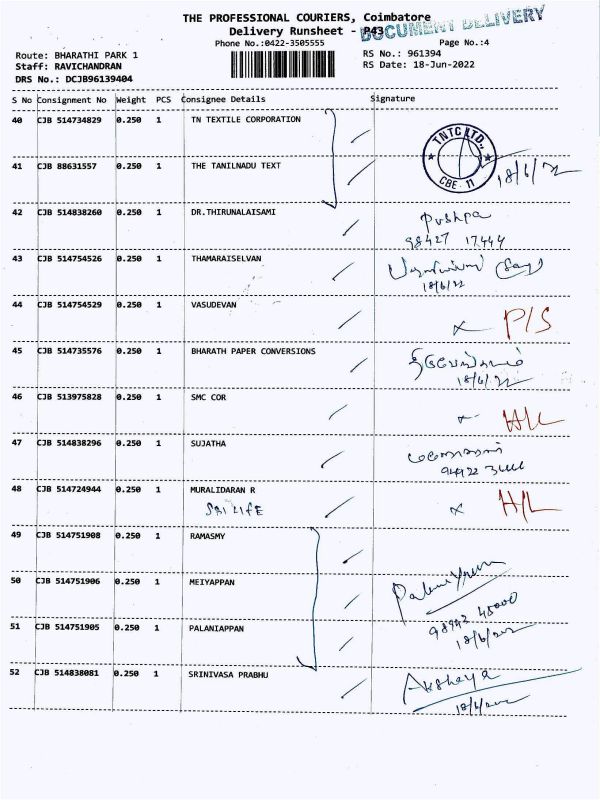 THE PROFESSIONAL COURIERS, Coimbatore
DOCUMENT DELIVERY
Delivery Runsheet - P43
Phone No.:0422-3505555
Page No.:4
Route: BHARATHI PARK 1
RS No.: 961394
Staff: RAVICHANDRAN
RS Date: 18-Jun-2022
DRS No.: DCJB96139404
S No Consignment No Weight PCS Consignee Details Signature
40 CJB 514734829 0.250 1 TN TEXTILE CORPORATION
TNTC LTD.,
CBE - 11
41 CJB 88631557 0.250 1 THE TANILNADU TEXT 18/6/22
42 CJB 514838260 0.250 1 DR.THIRUNALAISAMI Pushpa
98427 17444
43 CJB 514754526 0.250 1 THAMARAISELVAN
18/6/22
44 CJB 514754529 0.250 1 VASUDEVAN x P/S
45 CJB 514735576 0.250 1 BHARATH PAPER CONVERSIONS
18/6/22
46 CJB 513975828 0.250 1 SMC COR x H/L
47 CJB 514838296 0.250 1 SUJATHA
48 CJB 514724944 0.250 1 MURALIDARAN R x H/L
SBI LIFE
49 CJB 514751908 0.250 1 RAMASMY
50 CJB 514751906 0.250 1 MEIYAPPAN
51 CJB 514751905 0.250 1 PALANIAPPAN
52 CJB 514838081 0.250 1 SRINIVASA PRABHU Akshaya